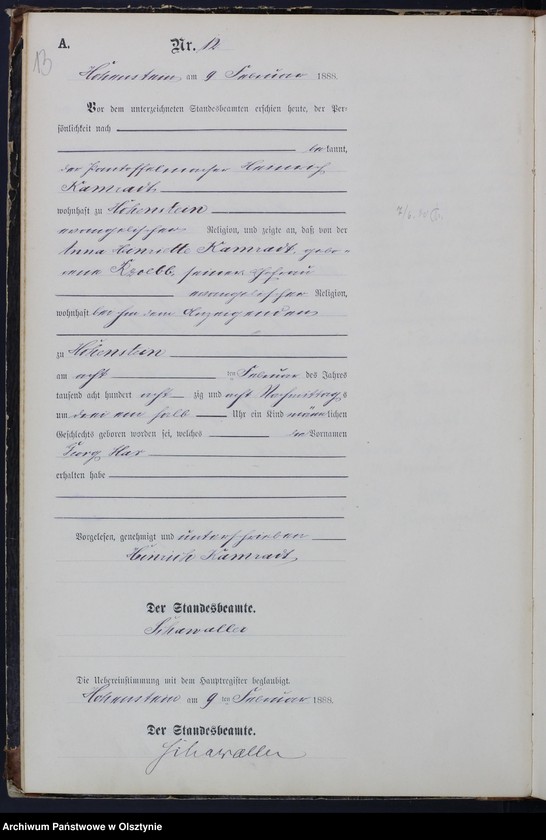 A.
Nr. 12
13
Hohenstein am 9 Februar 1888.
Vor dem unterzeichneten Standesbeamten erschien heute, der Per-
sönlichkeit nach
bekannt,
der Pantoffelmacher Heinrich
Kamradt,
wohnhaft zu Hohenstein
evangelischer Religion, und zeigte an, daß von der
Anna Henriette Kamradt, gebo-
rene seiner Ehefrau
evangelischer Religion,
wohnhaft bei ihm dem Anzeigenden
zu Hohenstein
am acht ten Februar des Jahres
tausend acht hundert acht zig und acht Nachmittags
um drei ein halb Uhr ein Kind männlichen
Geschlechts geboren worden sei, welches die Vornamen
Georg Max
erhalten habe
Vorgelesen, genehmigt und unterschrieben
Heinrich Kamradt,
Der Standesbeamte.
Die Uebereinstimmung mit dem Hauptregister beglaubigt.
Hohenstein am 9 ten Februar 1888.
Der Standesbeamte.
Archiwum Państwowe w Olsztynie